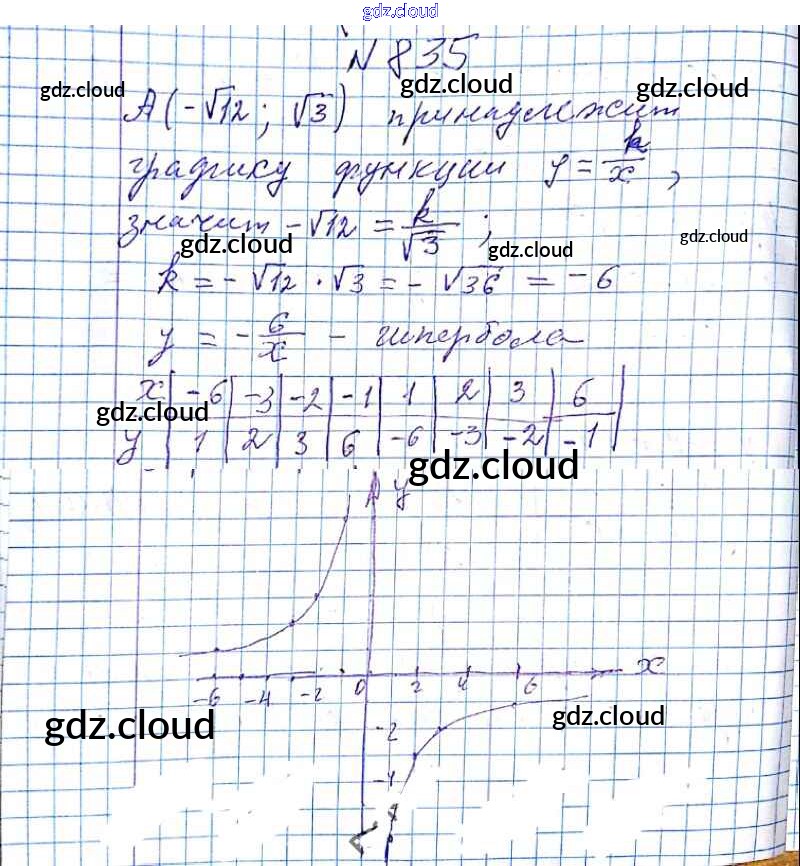 gdz.cloud
N 835
gdz.cloud gdz.cloud gdz.cloud
A(-√12; √3) принадлежит
графику функции y = k/x,
значит -√12 = k/√3;
gdz.cloud gdz.cloud gdz.cloud
k = -√12 · √3 = -√36 = -6
y = -6/x - гипербола
x | -6 | -3 | -2 | -1 | 1 | 2 | 3 | 6 |
gdz.cloud
y | 1 | 2 | 3 | 6 | -6 | -3 | -2 | -1 |
gdz.cloud
y
x
-6 -4 -2 0 2 4 6
gdz.cloud gdz.cloud
-2
-4